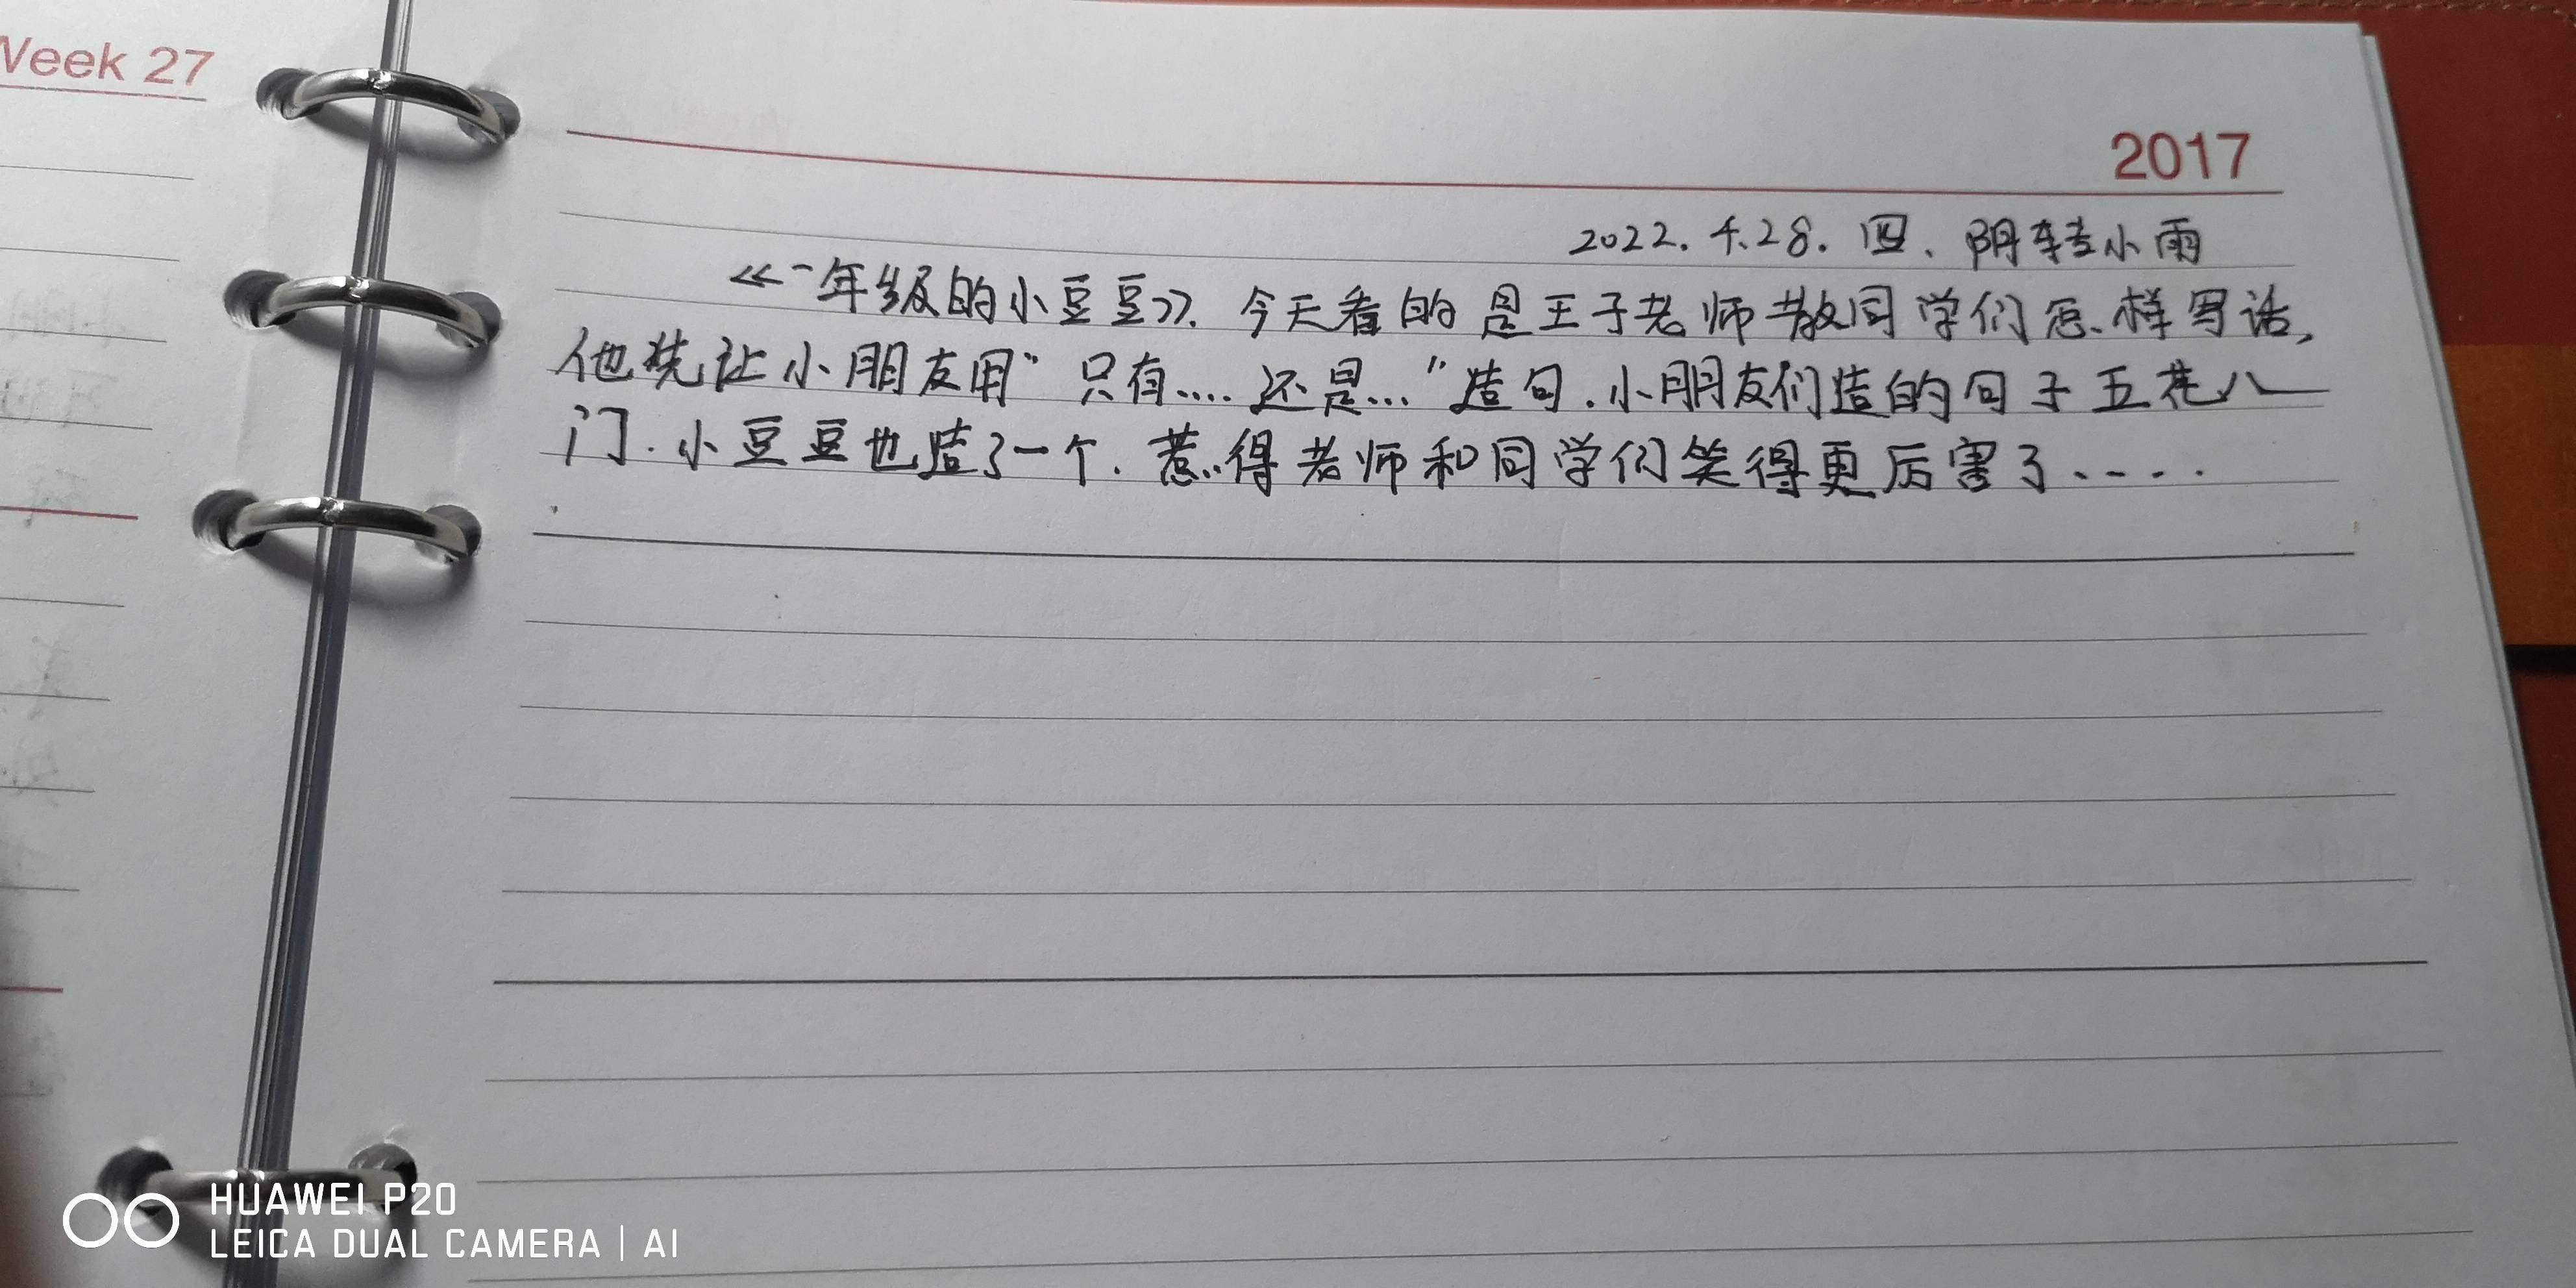 Week 27
2017
2022.4.28. 四、阴转小雨
《一年级的小豆豆》. 今天看的是王子老师教同学们怎样写话,
他先让小朋友用“只有....还是...”造句.小朋友们造的句子五花八
门.小豆豆也造了一个.惹得老师和同学们笑得更厉害了....
HUAWEI P20
LEICA DUAL CAMERA | AI